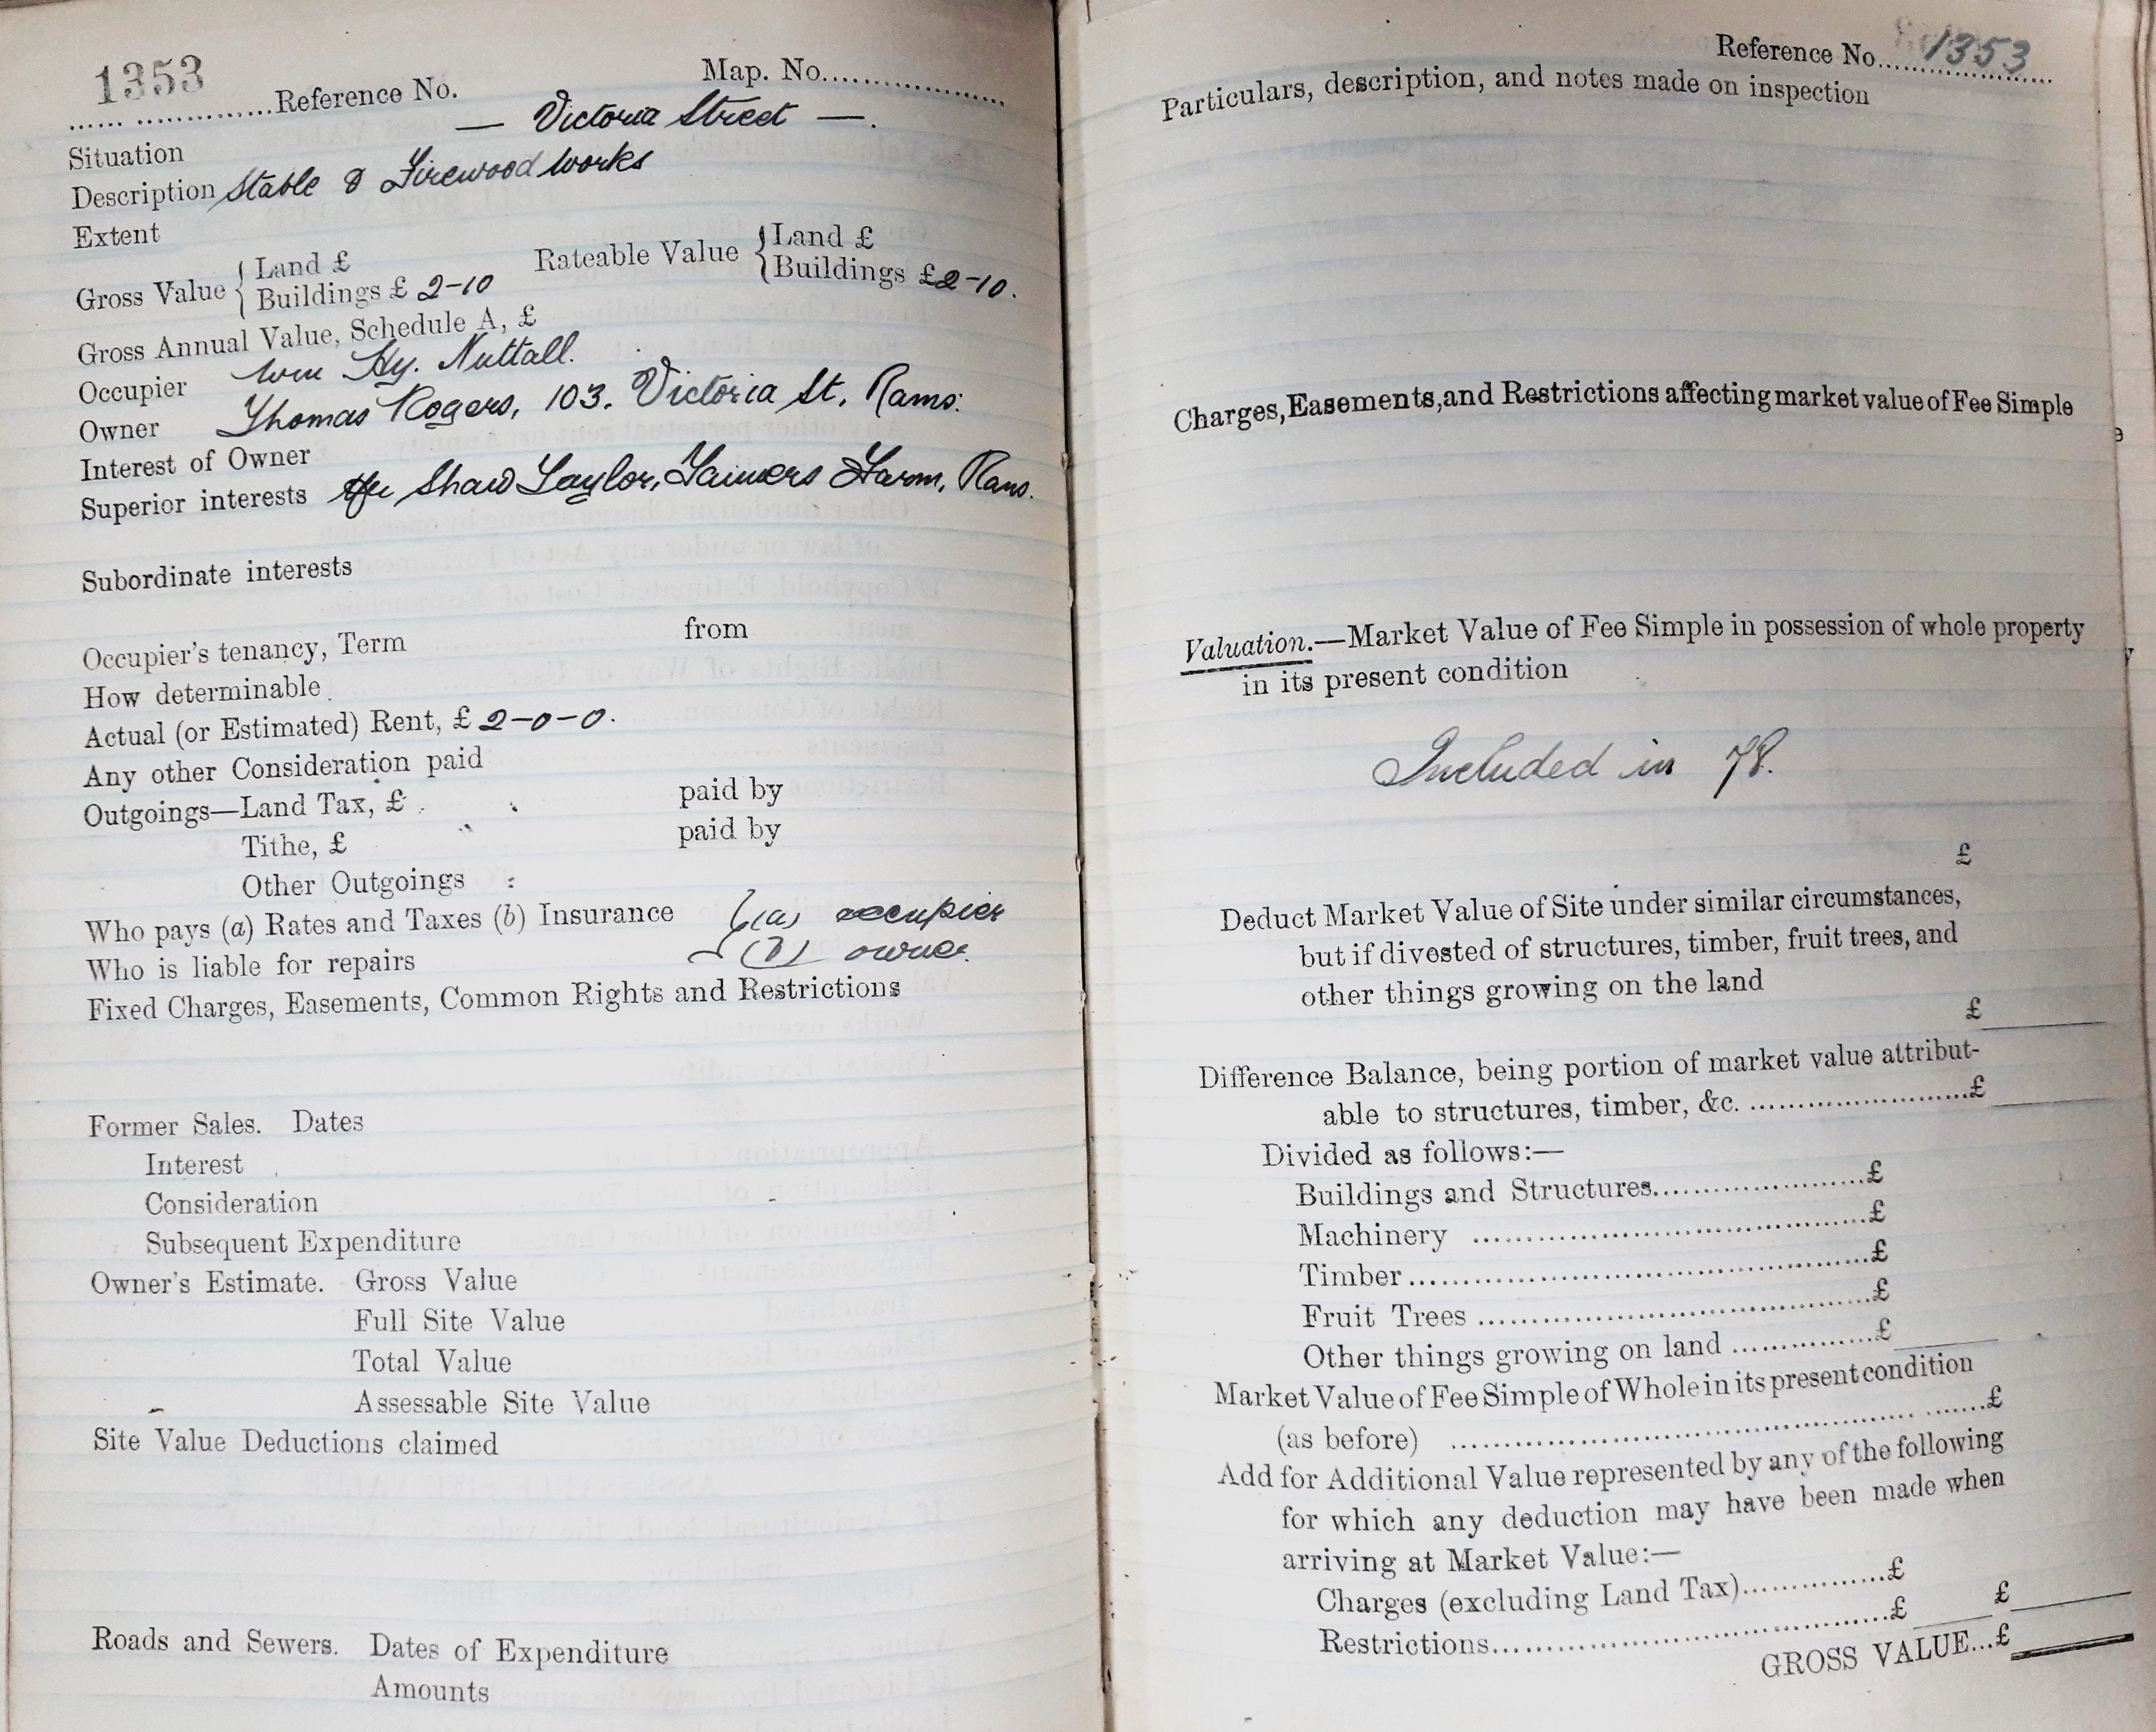 1353
...... ...............Reference No. Map. No..................
— Victoria Street —.
Situation
Description Stable & Firewood works
Extent
Gross Value { Land £ Rateable Value { Land £
Buildings £ 2-10 Buildings £2-10.
Gross Annual Value, Schedule A, £
Occupier Wm Hy. Nuttall.
Owner Thomas Rogers, 103. Victoria St. Rams:
Interest of Owner
Superior interests Shaw Taylor, Farm, Rams.
Subordinate interests
Occupier's tenancy, Term from
How determinable
Actual (or Estimated) Rent, £ 2-0-0.
Any other Consideration paid
Outgoings—Land Tax, £ paid by
Tithe, £ paid by
Other Outgoings
Who pays (a) Rates and Taxes (b) Insurance {(a) occupier
Who is liable for repairs (b) owner.
Fixed Charges, Easements, Common Rights and Restrictions
Former Sales. Dates
Interest
Consideration
Subsequent Expenditure
Owner's Estimate. Gross Value
Full Site Value
Total Value
Assessable Site Value
Site Value Deductions claimed
Roads and Sewers. Dates of Expenditure
Amounts
Reference No....1353...
Particulars, description, and notes made on inspection
Charges, Easements, and Restrictions affecting market value of Fee Simple
Valuation.—Market Value of Fee Simple in possession of whole property
in its present condition
Included in 78.
£
Deduct Market Value of Site under similar circumstances,
but if divested of structures, timber, fruit trees, and
other things growing on the land
£
Difference Balance, being portion of market value attribut-
able to structures, timber, &c. ........................£
Divided as follows:—
Buildings and Structures.......................£
Machinery ..........................................£
Timber.................................................£
Fruit Trees .........................................£
Other things growing on land ...............£
Market Value of Fee Simple of Whole in its present condition
(as before) ......................................................£
Add for Additional Value represented by any of the following
for which any deduction may have been made when
arriving at Market Value:—
Charges (excluding Land Tax)...............£
Restrictions.........................................£ £
GROSS VALUE...£